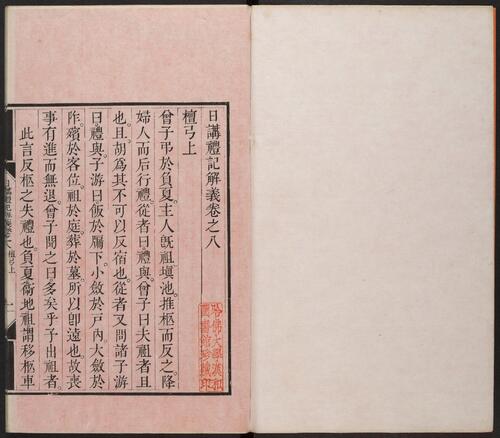 日講禮記解義卷之八
檀弓上
曾子弔於負夏。主人旣祖塡池。推柩而反之。降
婦人而后行禮。從者曰禮與。曾子曰夫祖者且
也。且。胡爲其不可以反宿也。從者又問諸子游
曰禮與。子游曰飯於牖下。小斂於戶內。大斂於
阼。殯於客位。祖於庭。葬於墓。所以卽遠也。故喪
事有進而無退。曾子聞之曰多矣乎予出祖者。
此言反柩之失禮也。負夏衛地。祖謂移柩車
日講禮記解義 卷之八 檀弓上 一
哈佛大學漢和
圖書館珍藏印